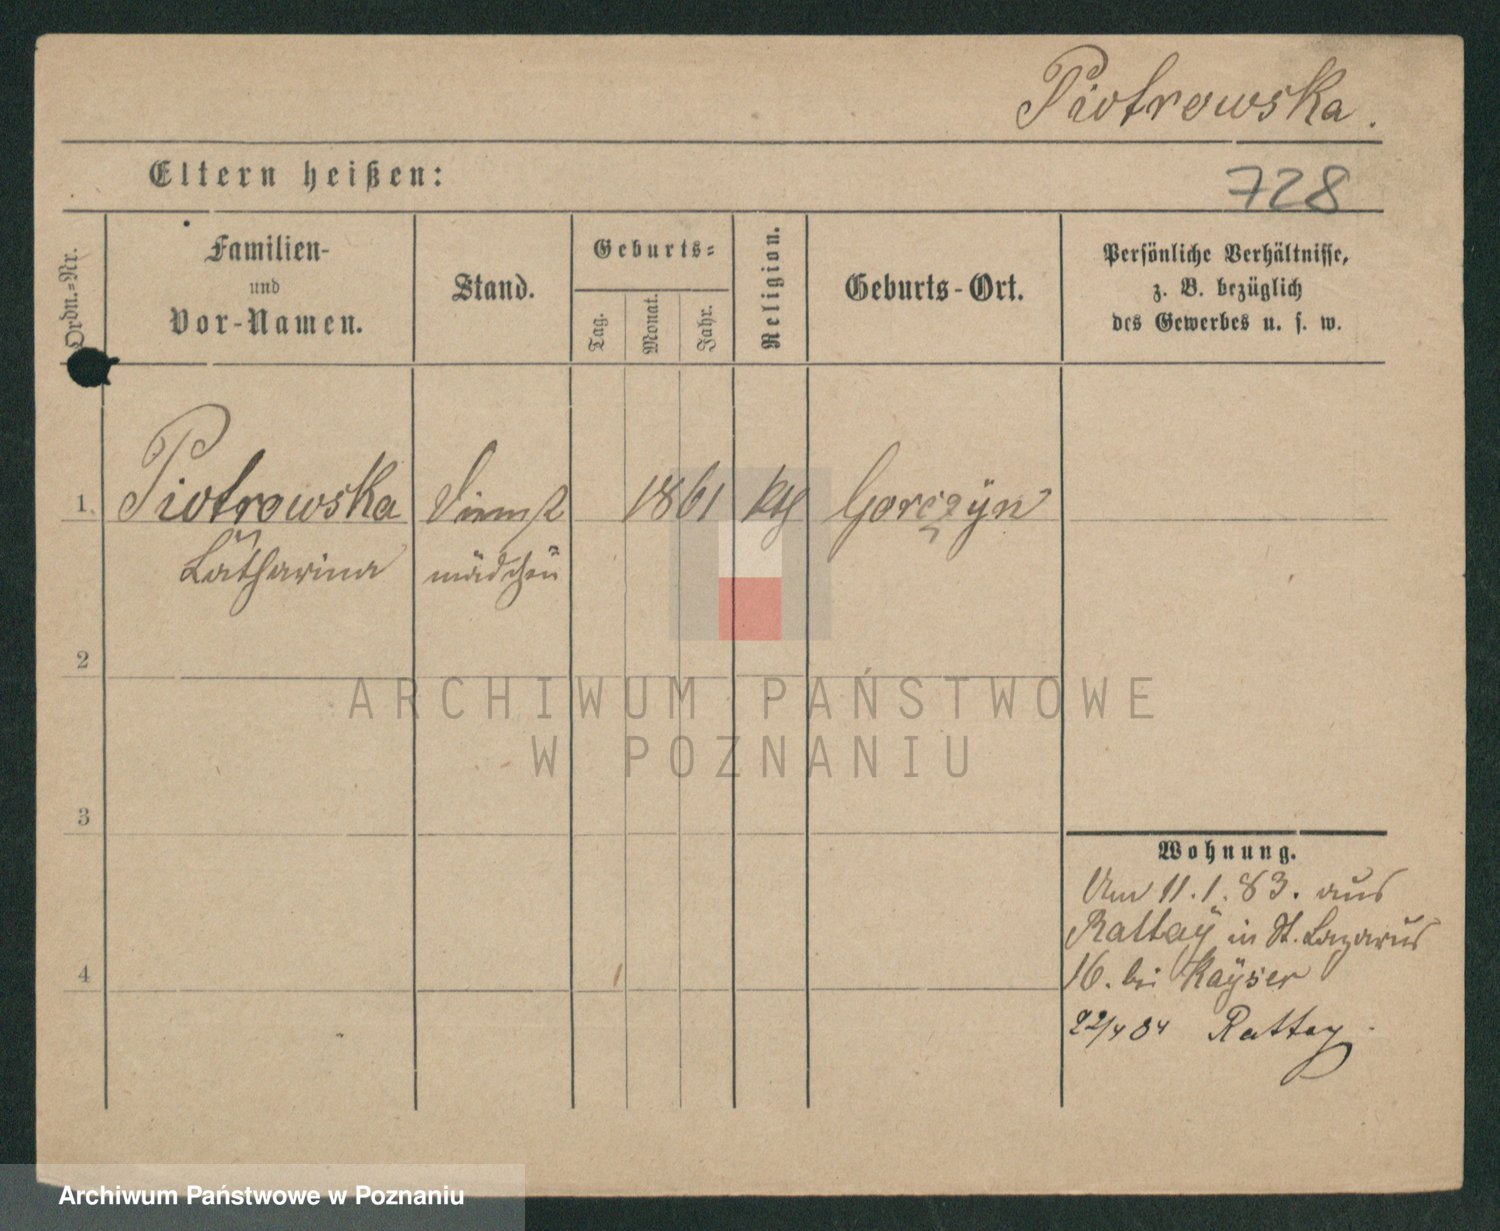 Piotrowska.
Eltern heißen:
728
Ordn.-Nr.
Familien-
und
Vor-Namen.
Stand.
Geburts-
Tag.
Monat.
Jahr.
Religion.
Geburts-Ort.
Persönliche Verhältnisse,
z. B. bezüglich
des Gewerbes u. s. w.
1. Piotrowska Dienst 1861 kth Gorczyn
Catharina mädchen
2
ARCHIWUM PAŃSTWOWE
W POZNANIU
3
Wohnung.
Am 11.1.83. aus
Rattay in St. Lazarus
16. bei Kayser
4
22/4 84 Rattay.
Archiwum Państwowe w Poznaniu